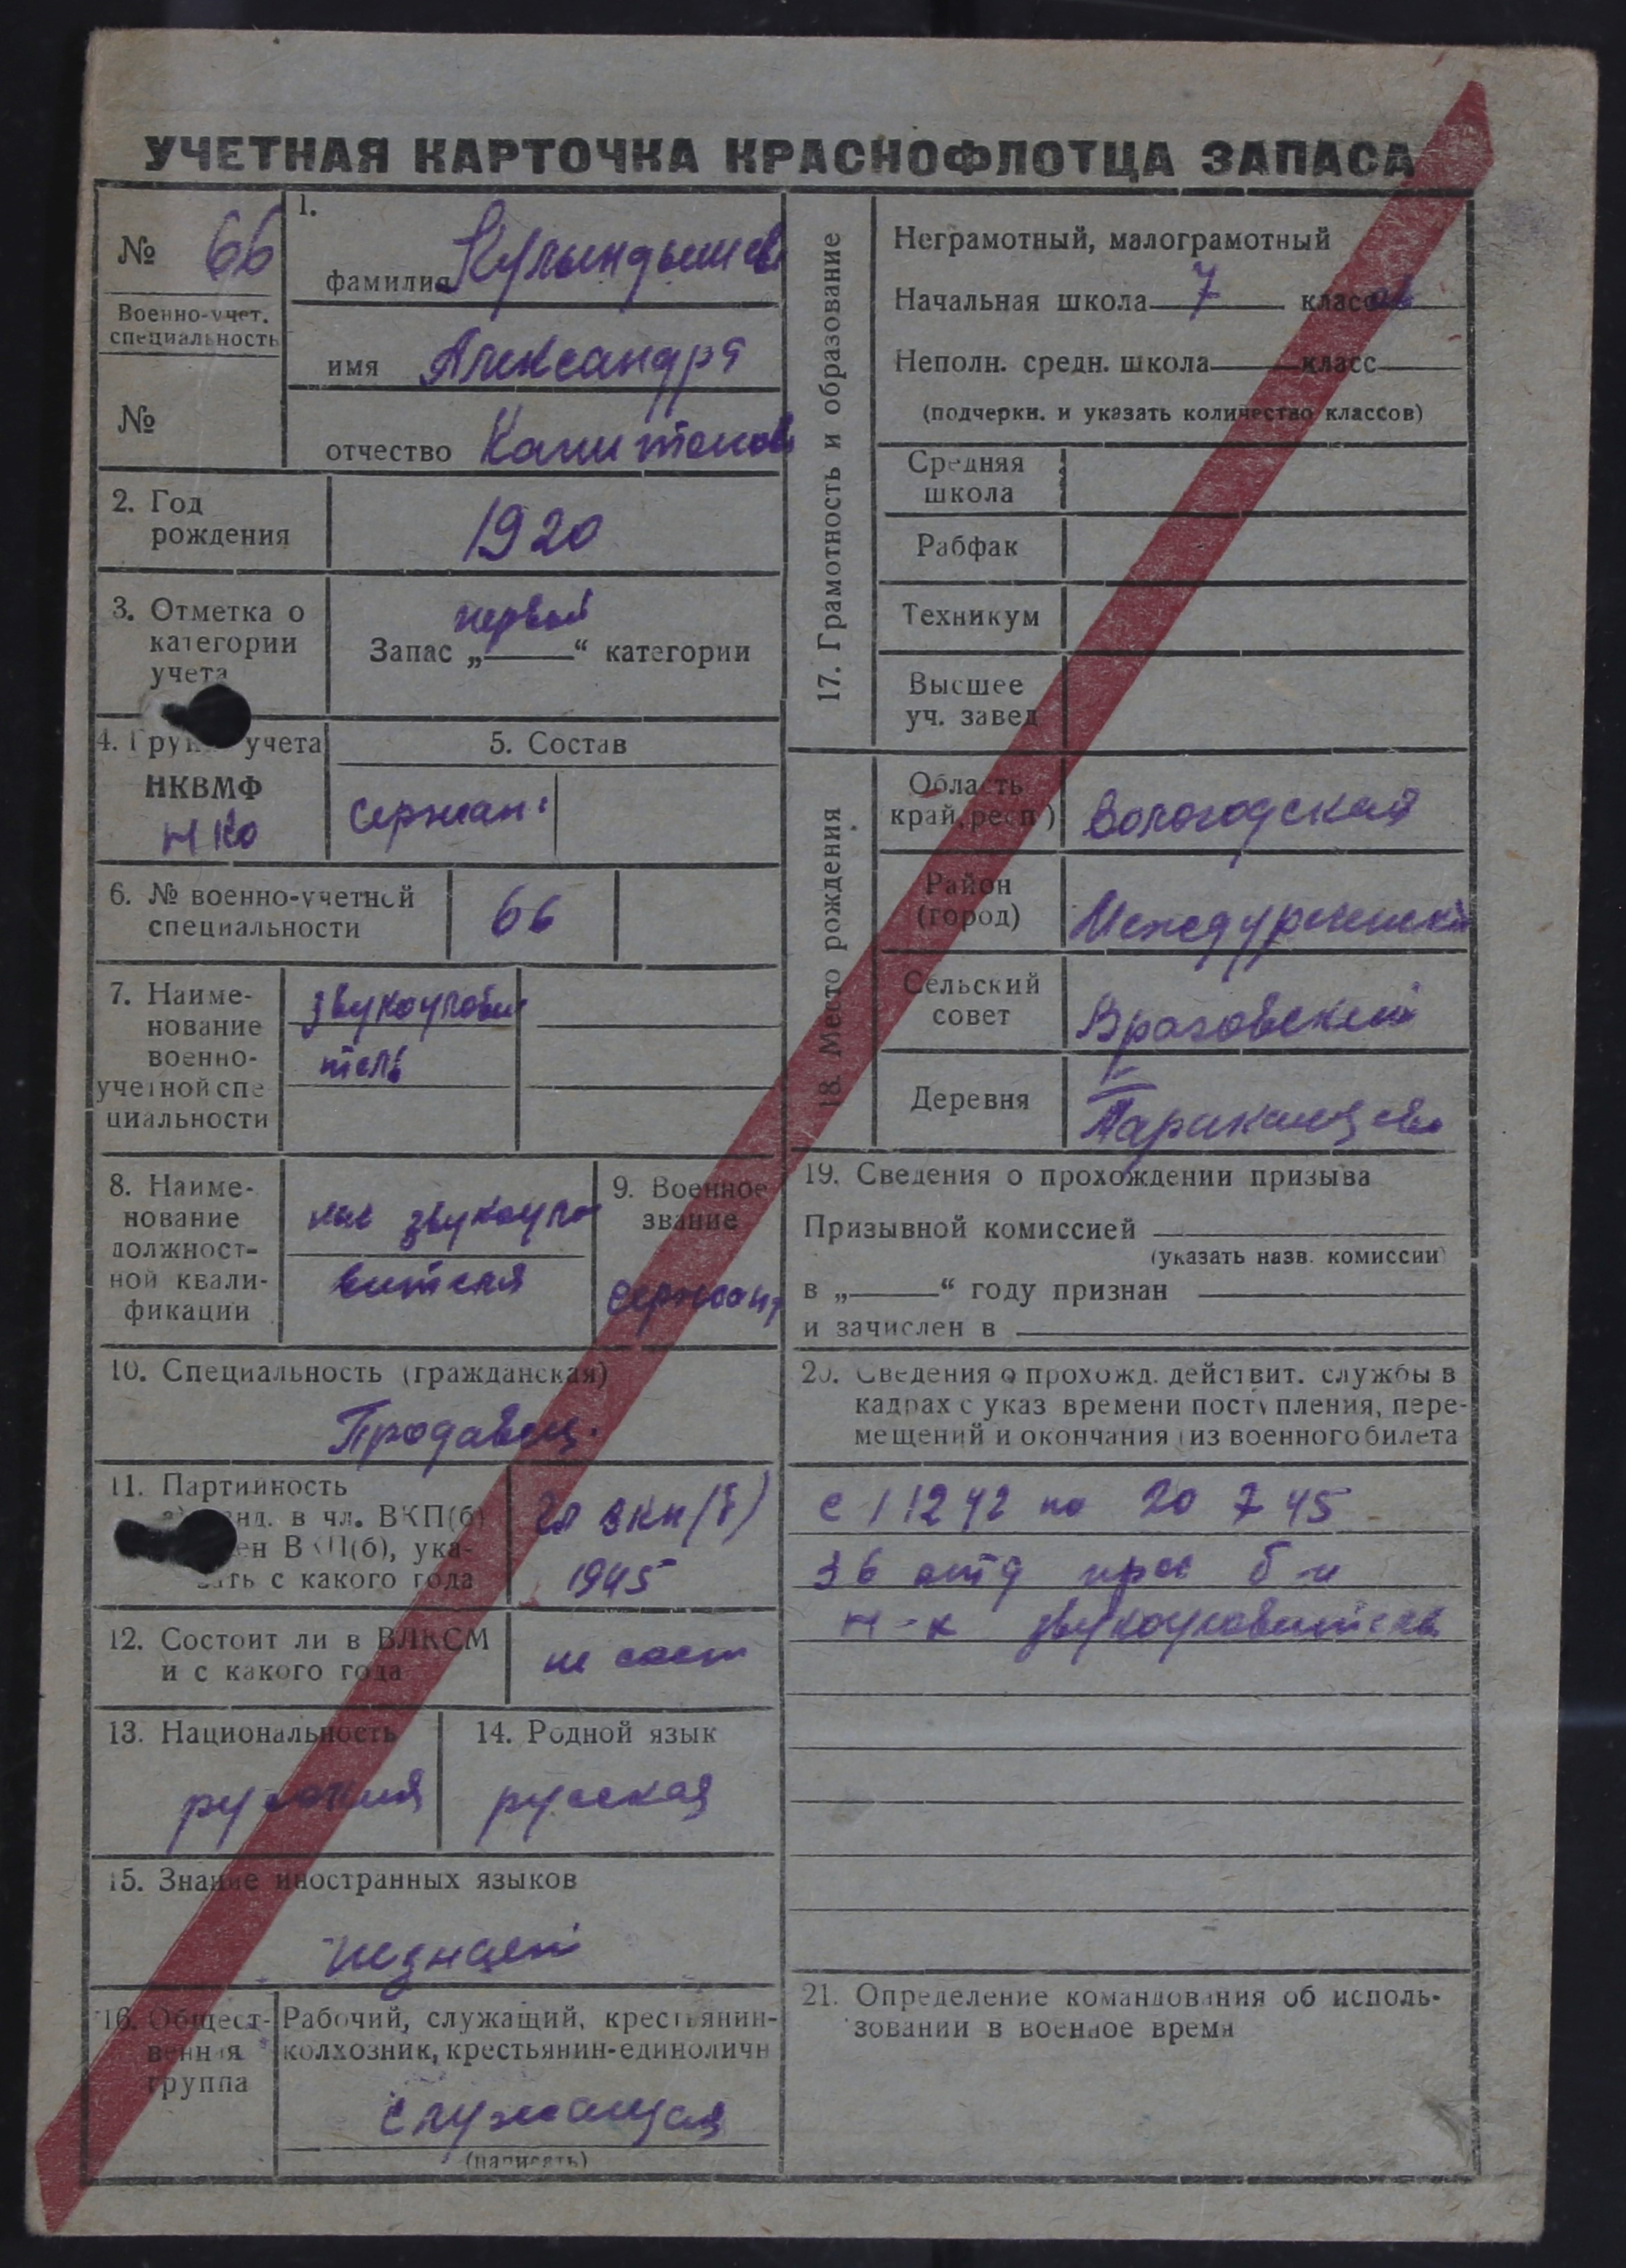 УЧЕТНАЯ КАРТОЧКА КРАСНОФЛОТЦА ЗАПАСА
№ 66
Военно-учет.
специальность
№
1.
фамилия
имя Александра
отчество Капитонов
2. Год
рождения
1920
3. Отметка о
категории
учета
первой
Запас „ “ категории
4. учета
НКВМФ
НКО
5. Состав
сержан
6. № военно-учетной
специальности
66
7. Наиме-
нование
военно-
учетной спе
циальности
звукоулови
тель
8. Наиме-
нование
должност-
ной квали-
фикации
звукоуло
вителя
9. Военное
звание
сержант
10. Специальность (гражданская)
Продавец.
11. Партийность
в чл. ВКП(б)
ВКП(б), ука-
с какого года
ВКП(б)
1945
12. Состоит ли в ВЛКСМ
и с какого года
не сост
13. Национальность
14. Родной язык
русская
15. Знание иностранных языков
незнает
16. Общест-
венная
группа
Рабочий, служащий, крестьянин-
колхозник, крестьянин-единоличн
служащая
(написать)
17. Грамотность и образование
Неграмотный, малограмотный
Начальная школа 7 классов
Неполн. средн. школа класс
(подчеркн. и указать количество классов)
Средняя
школа
Рабфак
Техникум
Высшее
уч. завед
18. Место рождения
Область
край, респ.)
Вологодская
Район
(город)
Междуреченский
Сельский
совет
Враговский
Деревня
19. Сведения о прохождении призыва
Призывной комиссией
(указать назв. комиссии)
в „ “ году признан
и зачислен в
20. Сведения о прохожд. действит. службы в
кадрах с указ времени поступления, пере-
мещений и окончания (из военного билета
с 1 12 42 по 20 7 45
36 отд б-н
н-к звукоуловитель
21. Определение командования об исполь-
зовании в военное время